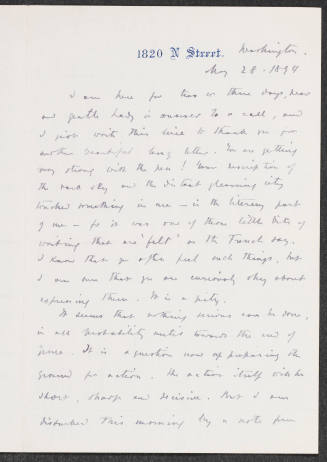 1820 N Street.
Washington.
May 28. 1894
I am here for two or three days, dear
and gentle lady in answer to a call, and
I just write this line to thank you for
another beautiful long letter. You are getting
very strong with the pen! Your description of
the dark sky and the distant gleaming city
touched something in me - in the literary part
of me - for it was one of those little bits of
writing that are "felt" as the French say.
I know that you often feel such things, but
I am sure that you are curiously shy about
expressing them. It is a pity.
It seems that nothing serious can be done,
in all probability until towards the end of
June. It is a question now of preparing the
ground for action. The action itself will be
short, sharp and decisive. But I am
disturbed this morning by a note from